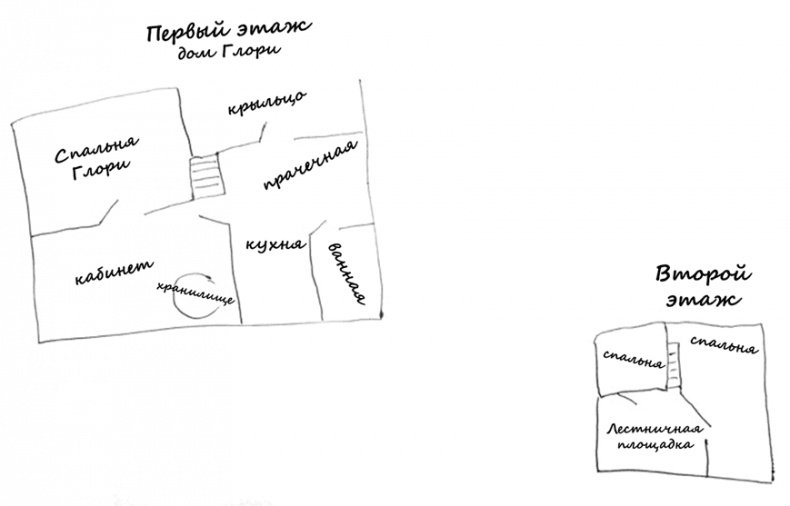 Первый этаж
дом Глори
крыльцо
Спальня
Глори
прачечная
кабинет
хранилище
кухня
ванная
Второй
этаж
спальня
спальня
Лестничная
площадка